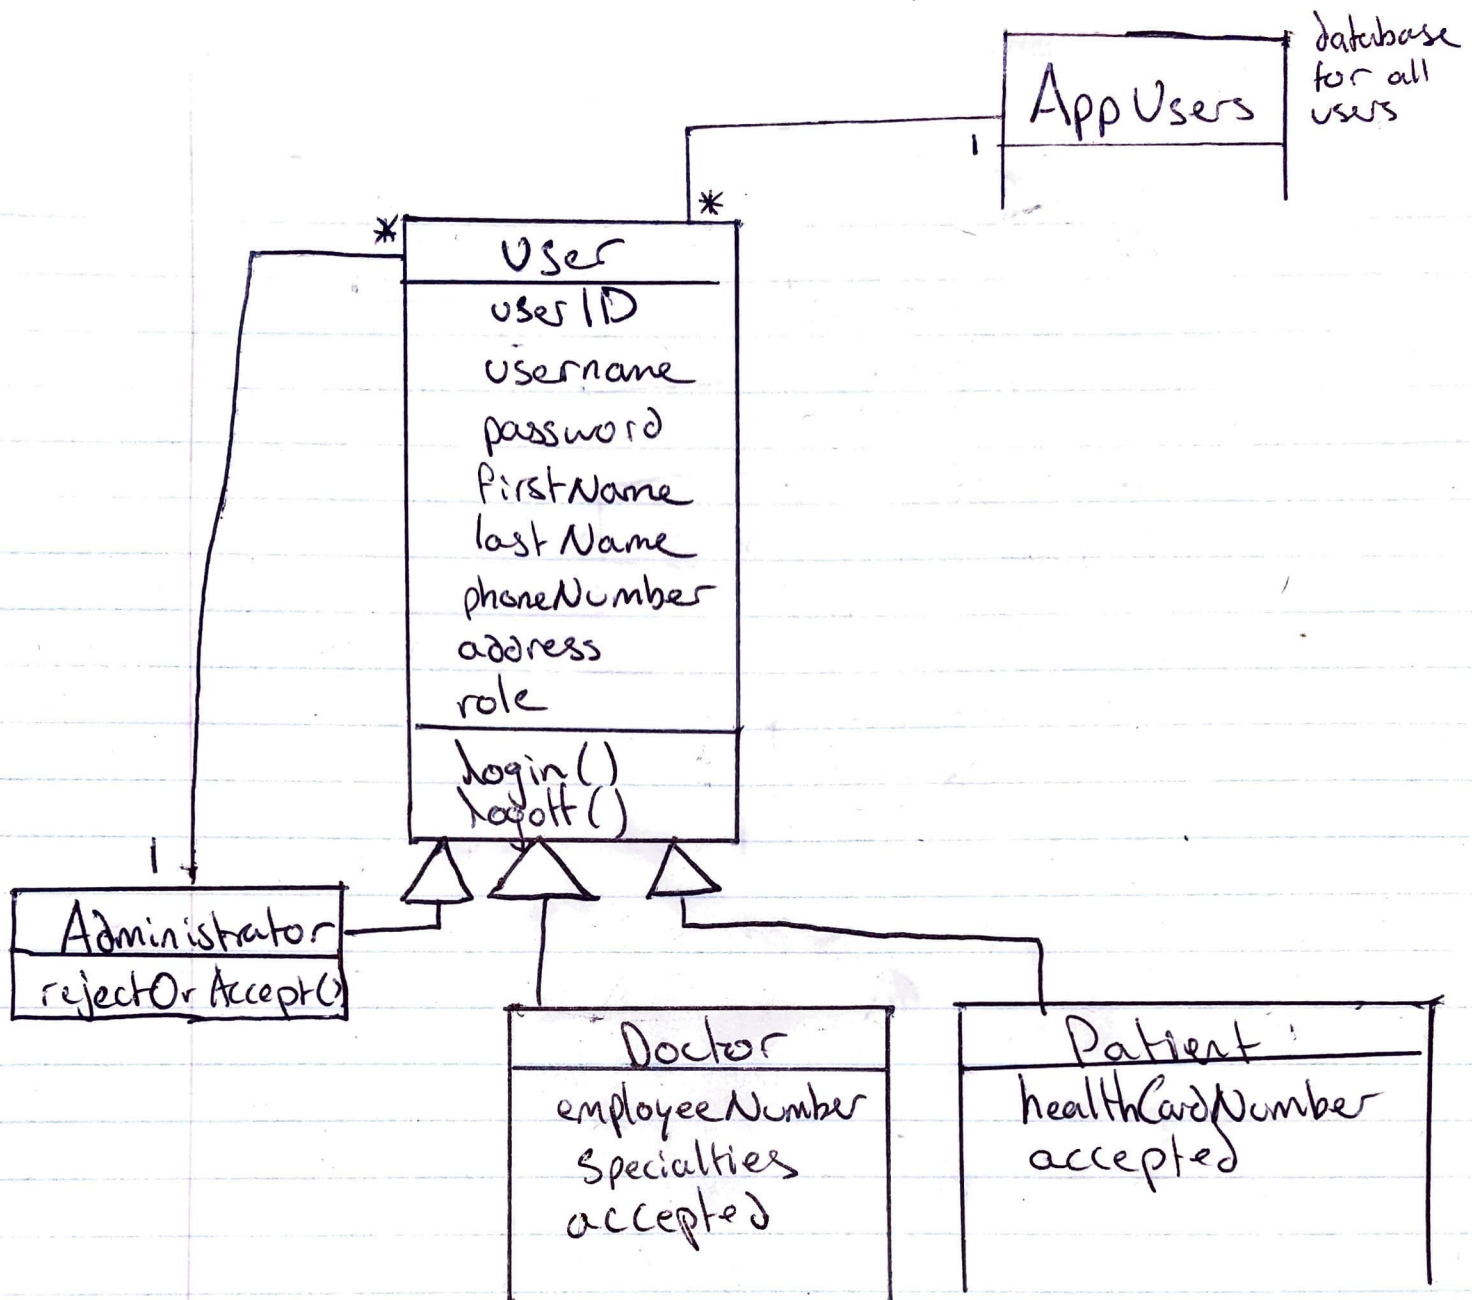 database
for all
users
AppUsers
1
*
*
User
userID
username
password
firstName
lastName
phoneNumber
address
role
login()
logoff()
1
Administrator
rejectOrAccept()
Doctor
employeeNumber
specialties
accepted
Patient
healthCardNumber
accepted